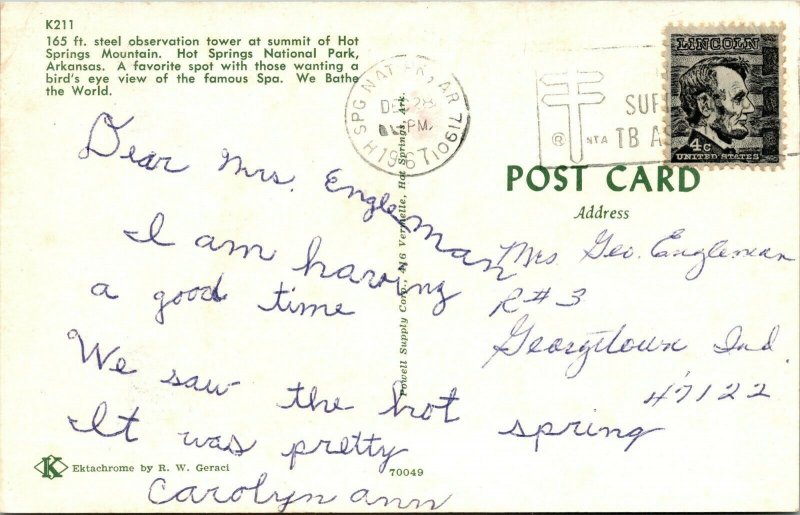 K211
165 ft. steel observation tower at summit of Hot
Springs Mountain. Hot Springs National Park,
Arkansas. A favorite spot with those wanting a
bird's eye view of the famous Spa. We Bathe
the World.
Dear Mrs. Engleman
I am having
a good time
We saw the hot spring
It was pretty
Carolyn ann
K Ektachrome by R. W. Geraci
70049
Powell Supply Corp., 416 Vermelle, Hot Springs, Ark.
H SPG NAT PK, AR 71901
DEC 28
PM
1967
TB
LINCOLN
4c
UNITED STATES
POST CARD
Address
Mrs Geo. Engleman
R#3
Georgetown Ind.
47122